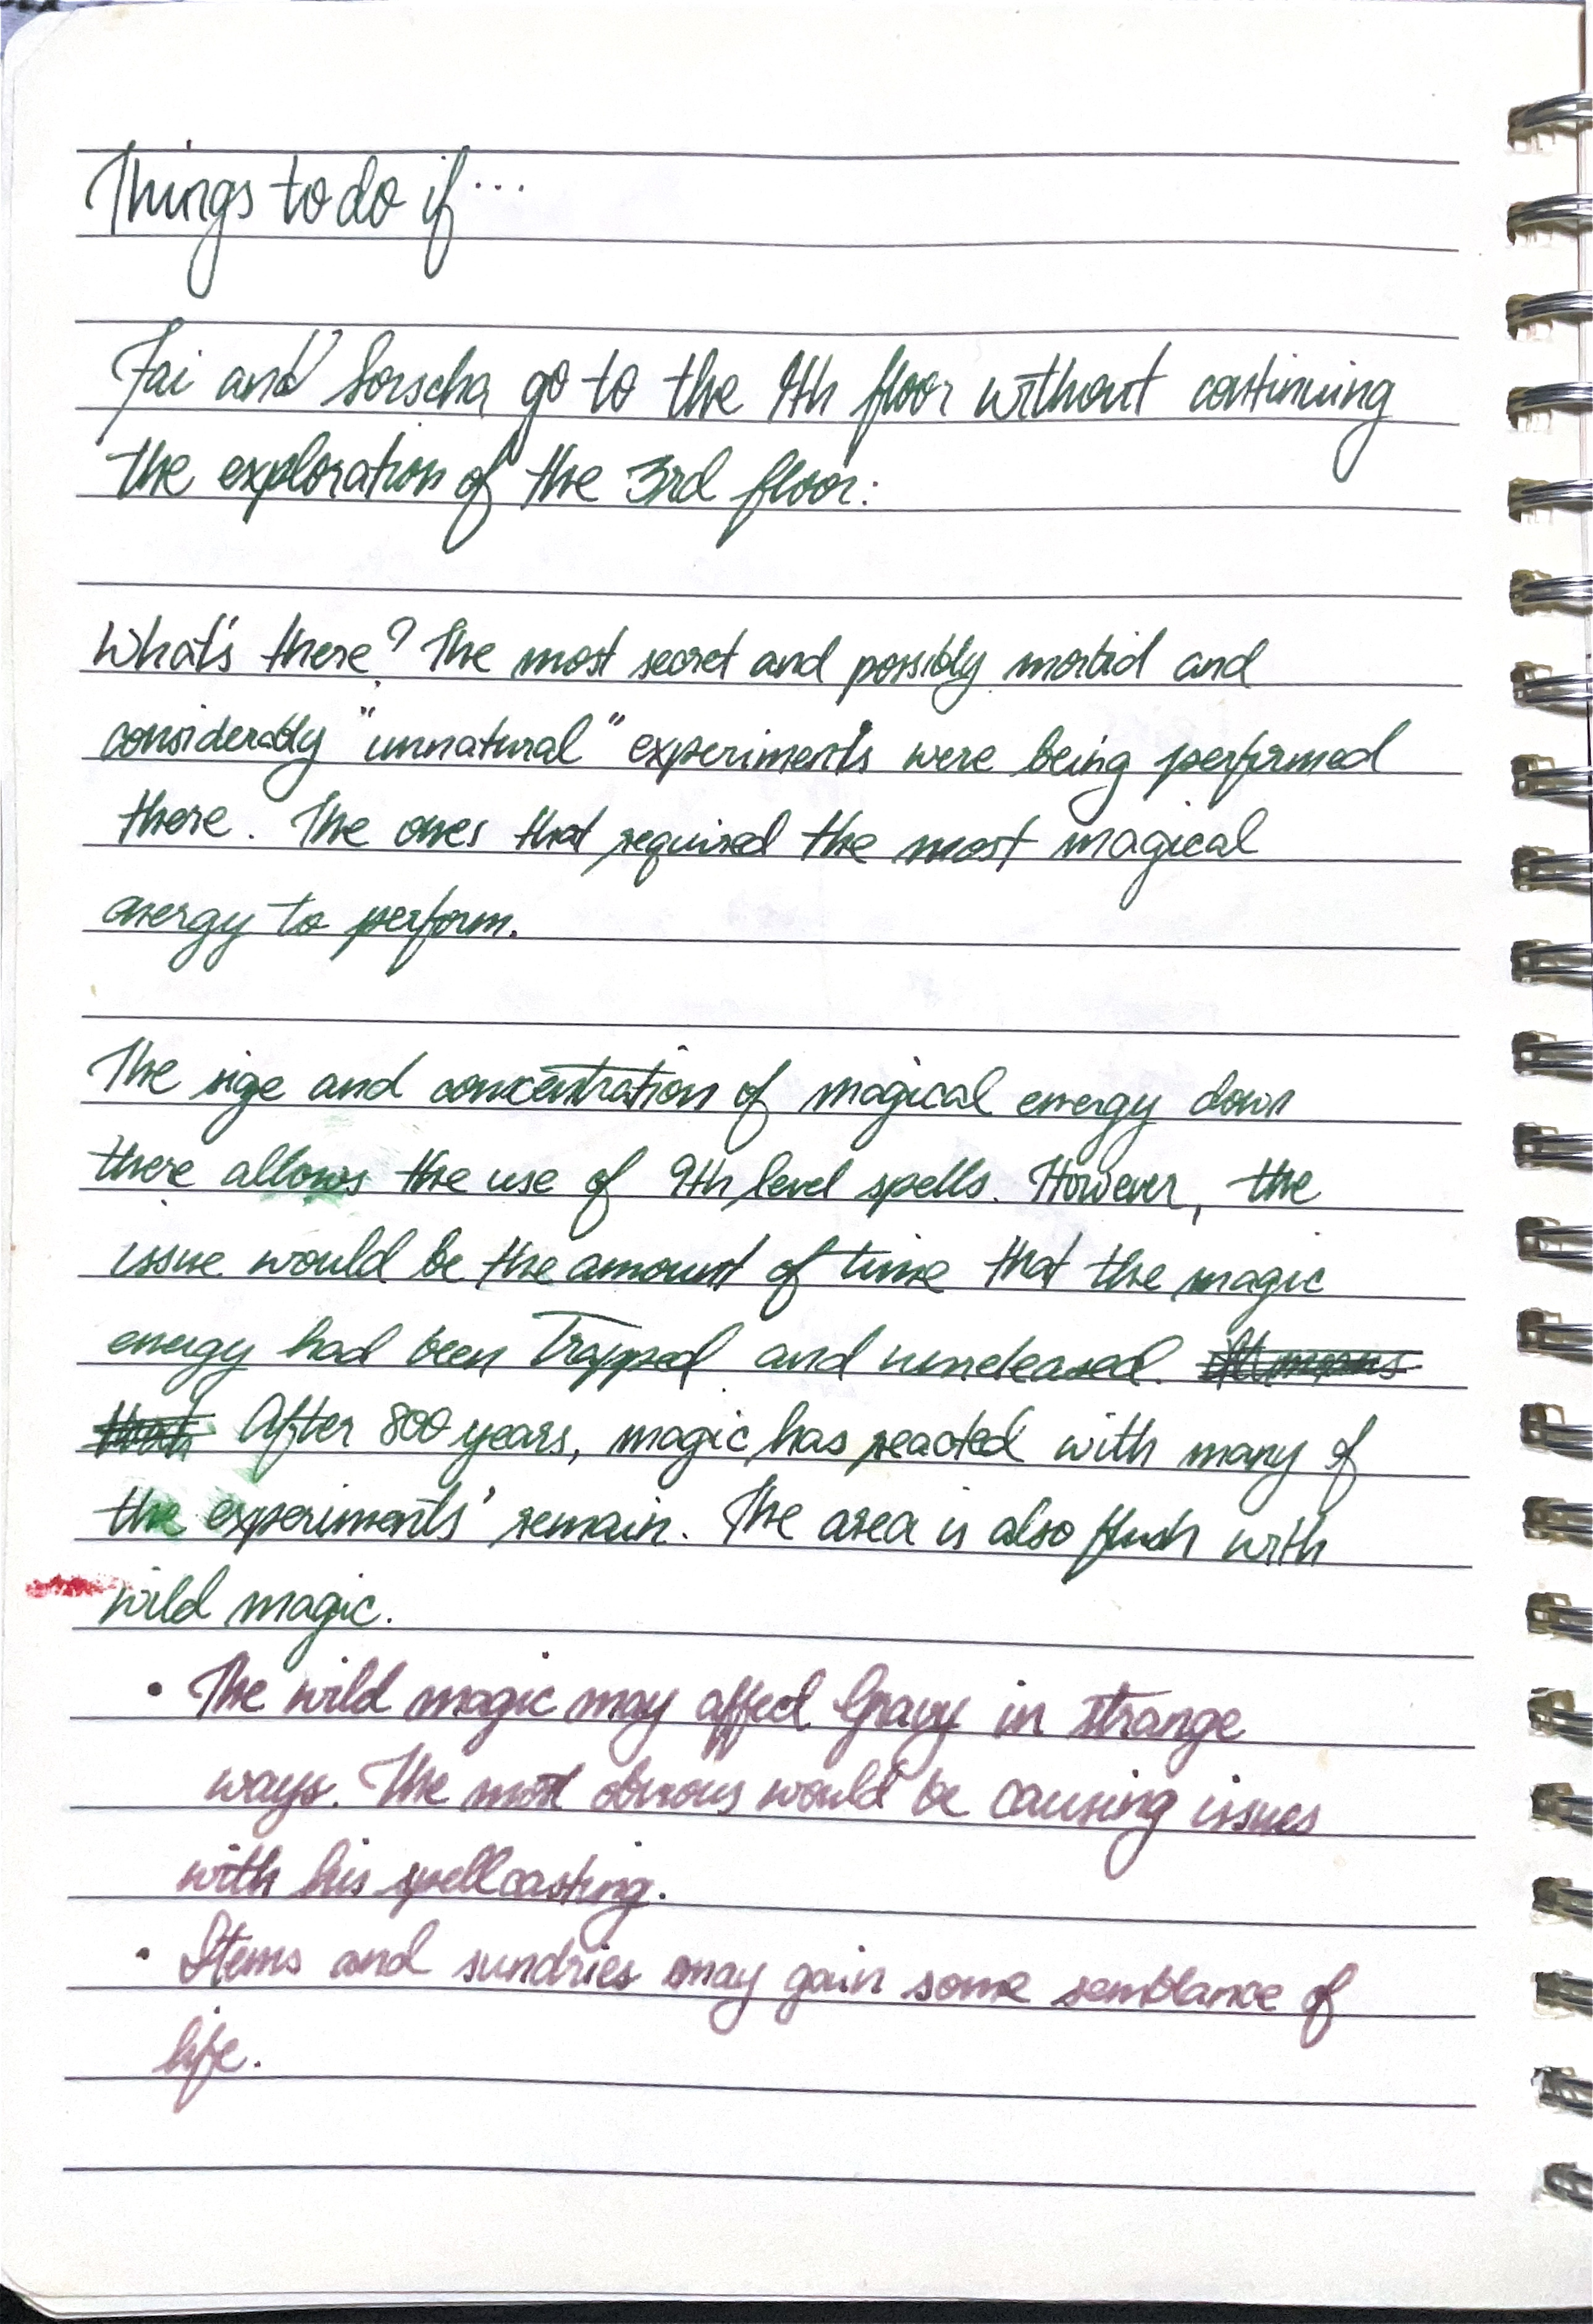 Things to do if...
Fai and Sorscha go to the 9th floor without continuing
the exploration of the 3rd floor:
What's there? The most secret and possibly morbid and
considerably "unnatural" experiments were being performed
there. The ones that required the most magical
energy to perform.
The size and concentration of magical energy down
there allows the use of 9th level spells. However, the
issue would be the amount of time that the magic
energy had been Trapped and unreleased. It means
that After 800 years, magic has reacted with many of
the experiments' remain. The area is also flush with
wild magic.
• The wild magic may affect Gravy in strange
ways. The most obvious would be causing issues
with his spellcasting.
• Items and sundries may gain some semblance of
life.